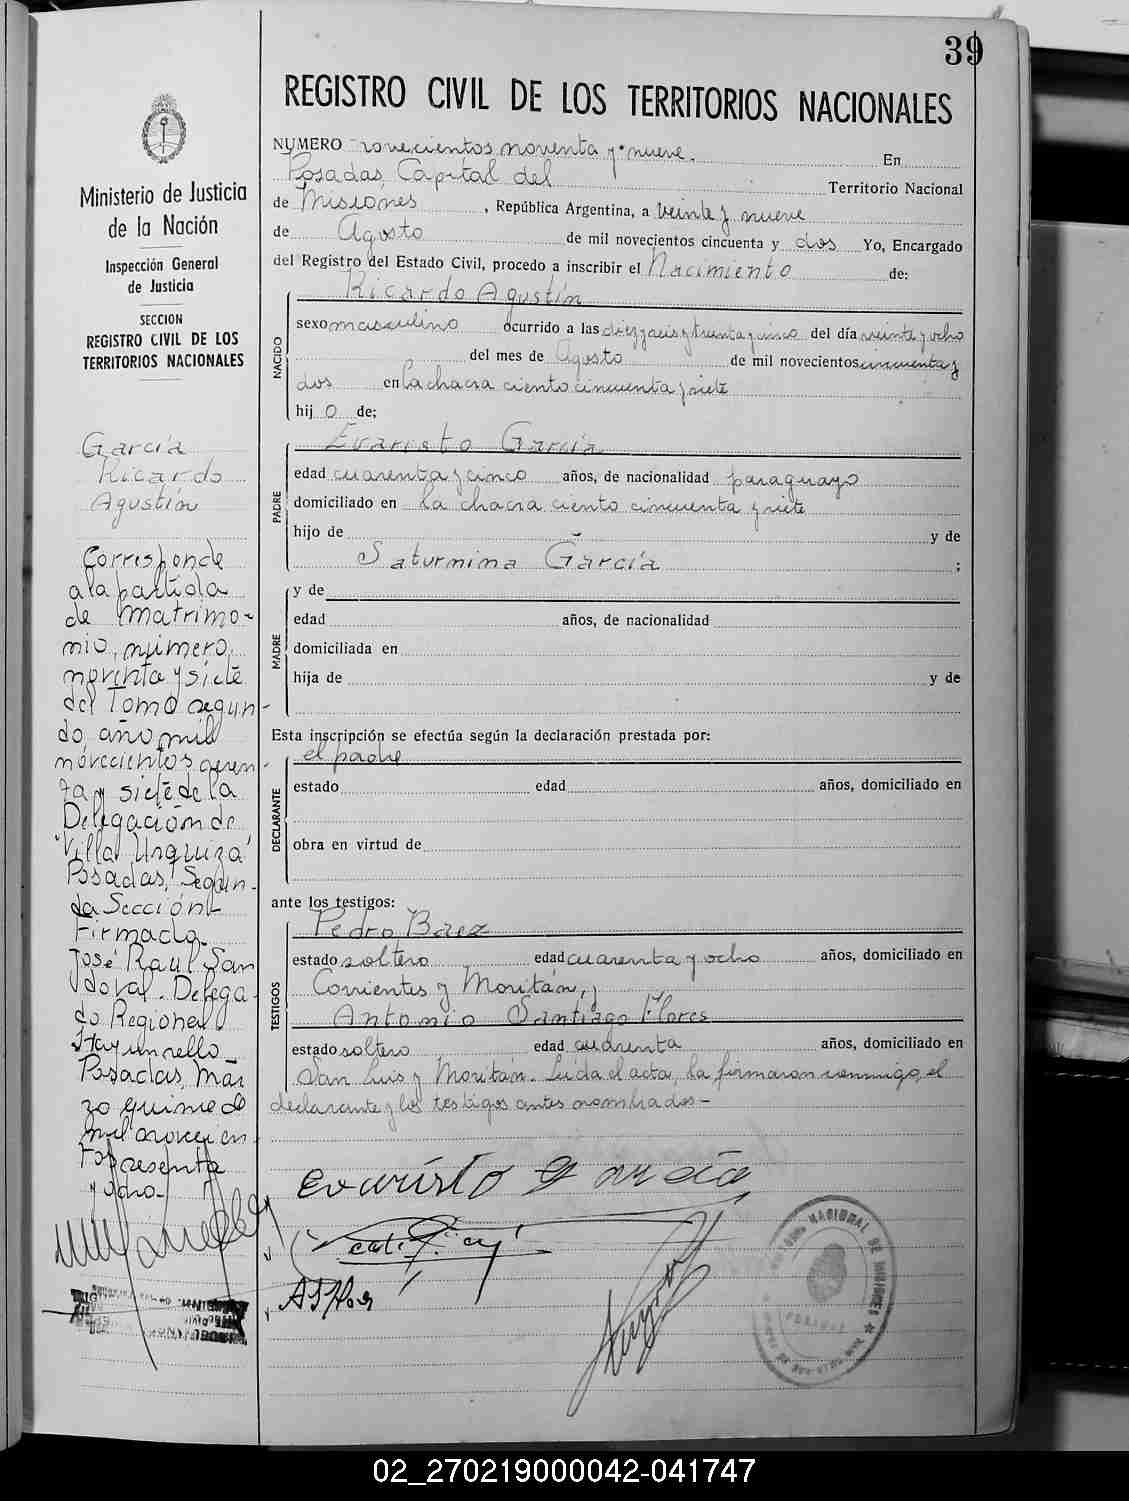 39
REGISTRO CIVIL DE LOS TERRITORIOS NACIONALES
Ministerio de Justicia
de la Nación
Inspección General
de Justicia
SECCION
REGISTRO CIVIL DE LOS
TERRITORIOS NACIONALES
García
Ricardo
Agustín
Corresponde
a la partida
de matrimo-
nio, número
noventa y siete
del Tomo segun-
do, año mil
novecientos
y siete de la
Delegación de
"Villa Urquiza"
Posadas, Segun-
da Sección
Firmado
José Raúl San
doval. Delega-
do Regional
Hay un sello
Posadas, Mar
zo quince de
mil novecien
tos sesenta
y ocho-
NUMERO novecientos noventa y nueve. En
Posadas, Capital del Territorio Nacional
de Misiones, República Argentina, a veinte y nueve
de Agosto de mil novecientos cincuenta y dos Yo, Encargado
del Registro del Estado Civil, procedo a inscribir el Nacimiento de:
NACIDO
Ricardo Agustín
sexo masculino ocurrido a las diez y seis y treinta y cinco del día veinte y ocho
del mes de Agosto de mil novecientos cincuenta y
dos en la chacra ciento cincuenta y siete
hij o de;
PADRE
Evaristo García
edad cuarenta y cinco años, de nacionalidad paraguayo
domiciliado en La chacra ciento cincuenta y siete
hijo de y de
Saturnina García ;
MADRE
y de
edad años, de nacionalidad
domiciliada en
hija de y de
Esta inscripción se efectúa según la declaración prestada por:
DECLARANTE
el padre
estado edad años, domiciliado en
obra en virtud de
ante los testigos:
TESTIGOS
Pedro Baez
estado soltero edad cuarenta y ocho años, domiciliado en
Corrientes y Moritán, y
Antonio Santiago Flores
estado soltero edad cuarenta años, domiciliado en
San Luis y Moritán. Leída el acta, la firmaron conmigo, el
declarante y los testigos antes nombrados-
evaristo garcia
02_270219000042-041747